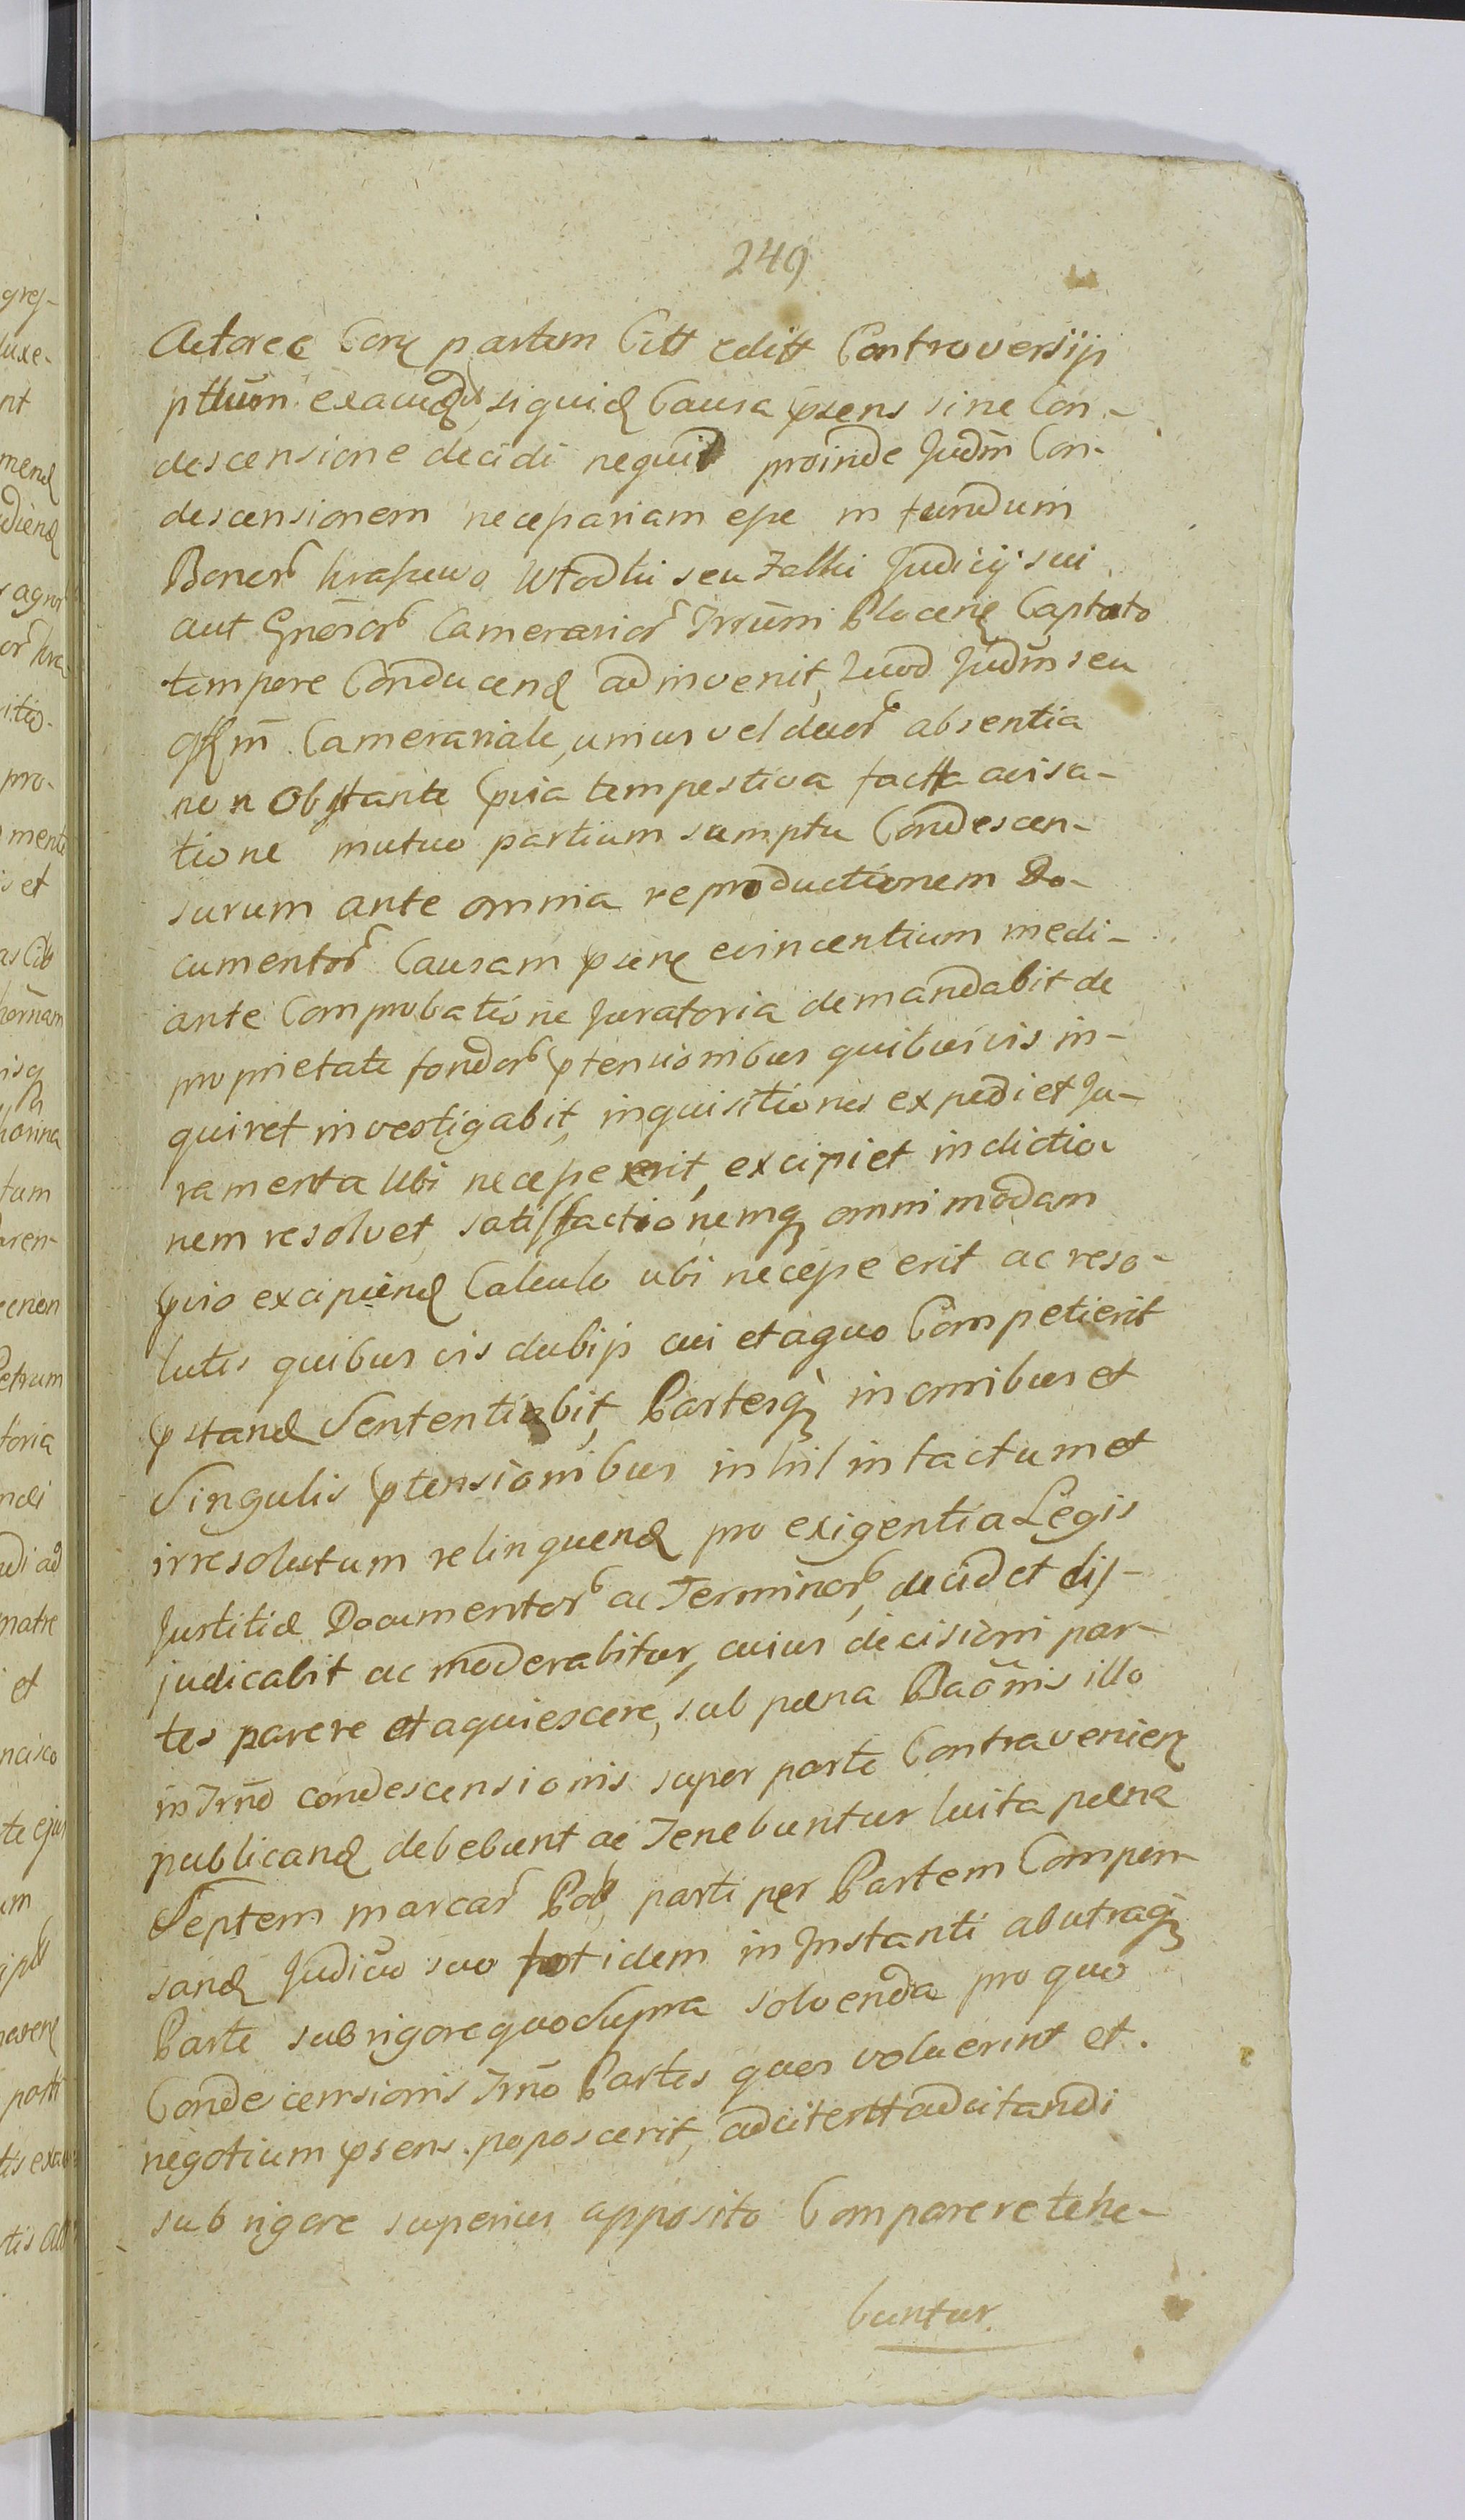 249
Actorea Corz partem Citt editt Controversijs
ptium exaudit, siquid Causa psens sine Con-
descensione decidi nequit proinde Judm Con-
descensionem necessariam esse in fundum
Bonor Krassewo Włodki seu Zalki Judicij sui
aut Gnosor Camerarior Trrumi Plocenz Captato
tempore Conducend adinvenit, Quod Judm seu
Offm Camerariale, unius vel duor absentia
non Obstante pvia tempestiva facta avisa-
tione mutuo partium sumptu Condescen-
surum ante omnia reproductionem Do-
cumentor Causam psenz evincentium medi-
ante Comprobatione Juratoria demandabit de
proprietate fondor ptensionibus quibusvis in-
quiret investigabit, inquisitiones expediet Ju-
ramenta Ubi necesse erit, excipiet indictio-
nem resolvet satisfactionemq omnimodam
pvio excipiend Calculo ubi necesse erit ac reso-
lutis quibusvis dubijs cui et a quo Competierit
pstand Sententiabit, Partesq in omnibus et
Singulis ptensionibus inhil intactum et
irresolutum relinquend pro exigentia Legis
Justitiæ Documentor ac Terminor, decidet dis-
judicabit ac moderabitur, cuius decisioni par-
tes parere et aquiescere, sub pœna Baōnis illo
in Trno condescensionis super parte Contravenienz
publicand debebunt ac Tenebuntur luita pœna
Septem marcar Pol, parti per Partem Compen-
sand Judicio suo totidem in Instanti ab utraq
Parte sub rigore quo supra solvenda pro quo
Condecensionis Trno Partes quos voluerint et
negotium psens poposcerit, adcitentt adcitandi
sub rigore superius apposito Comparere tene-
buntur.